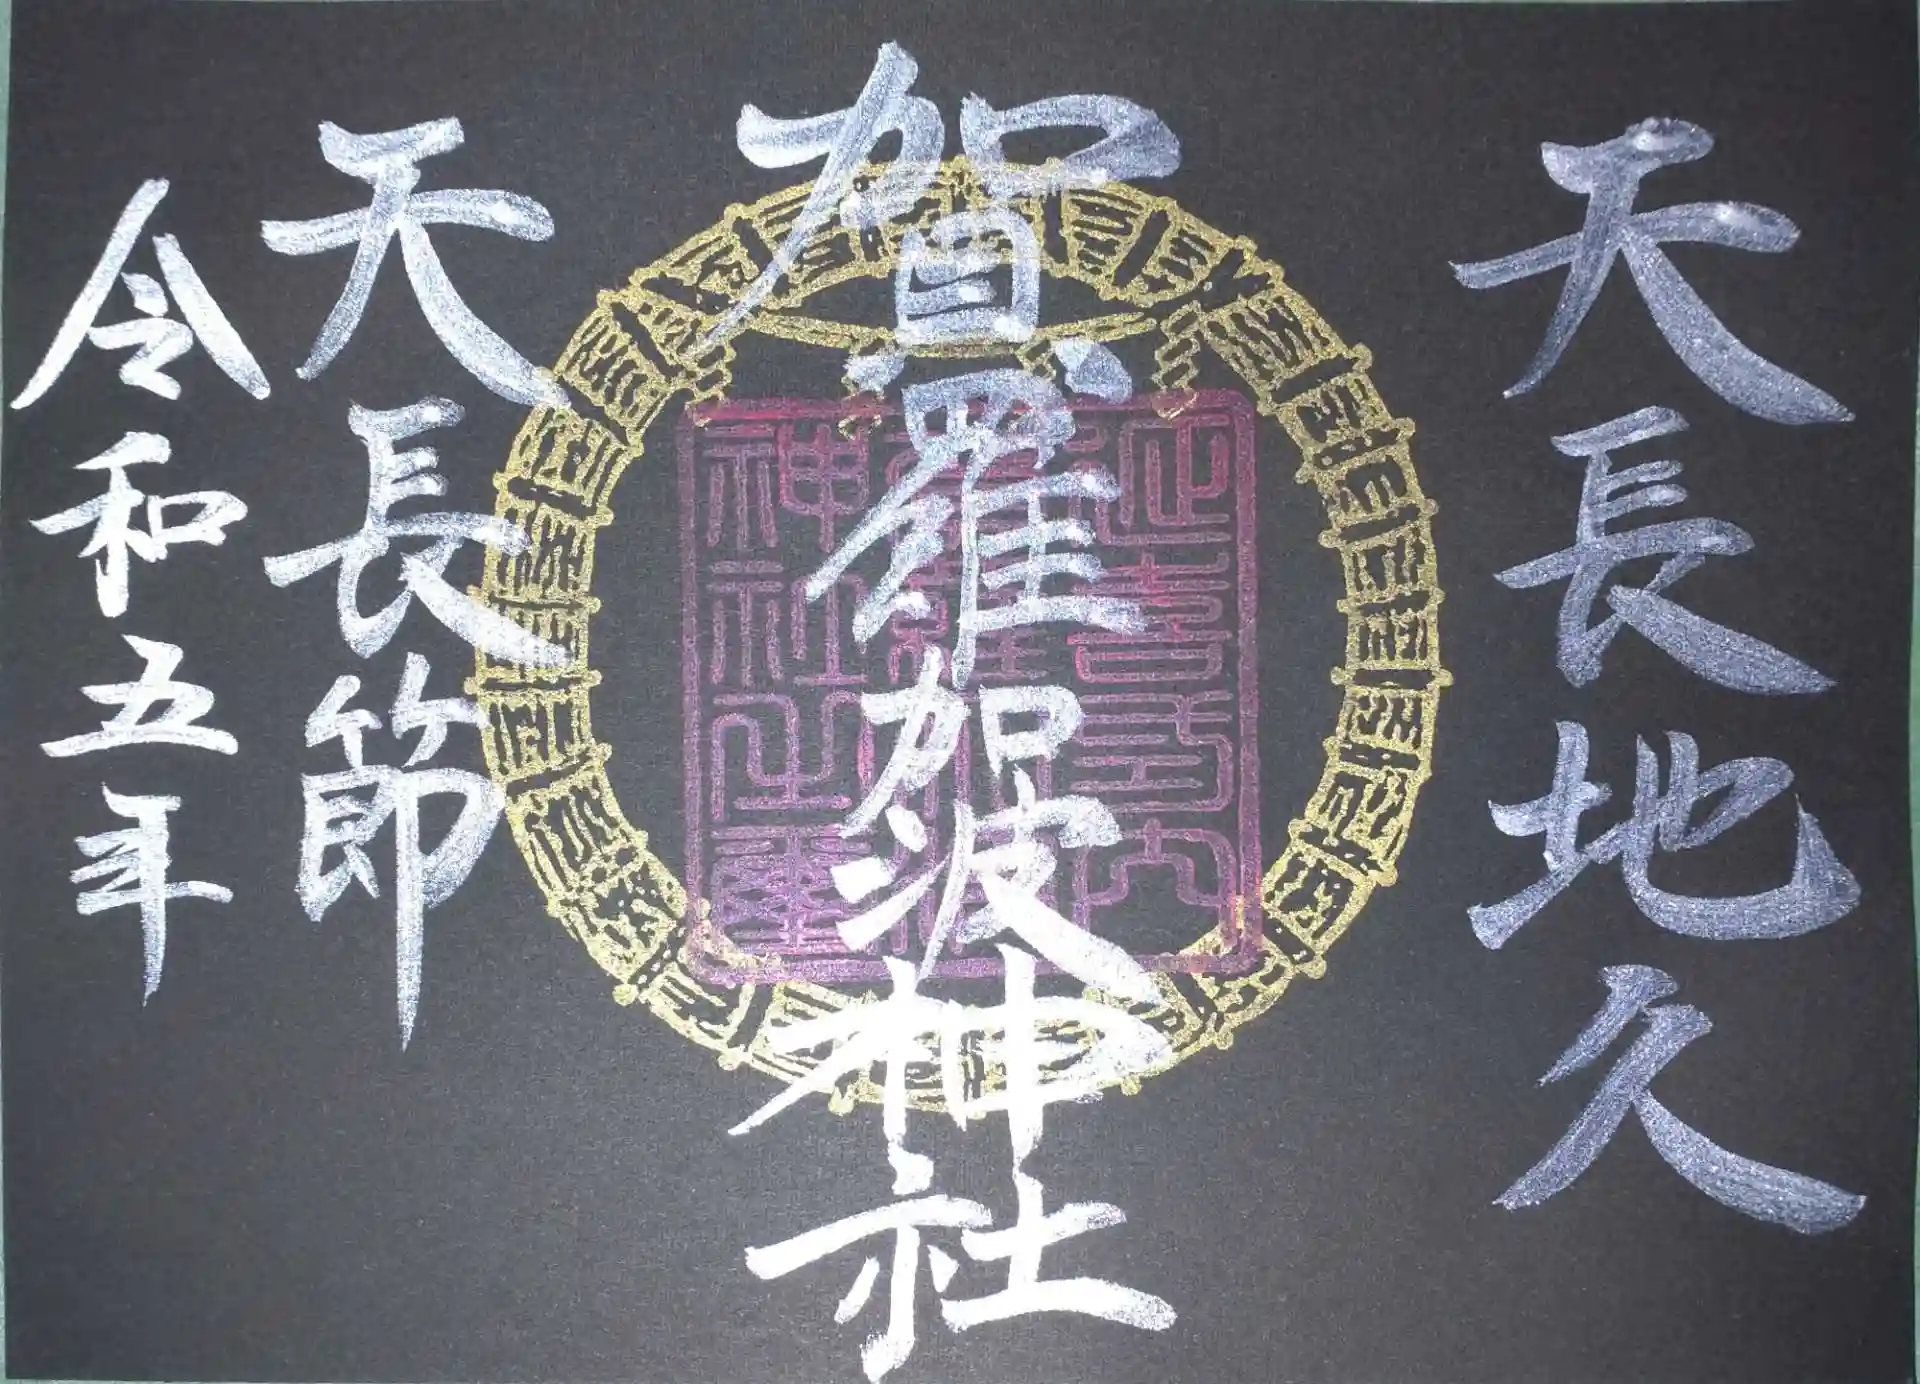 天長地久
賀羅加波神社
延喜式内
神社之璽
天長節
令和五年